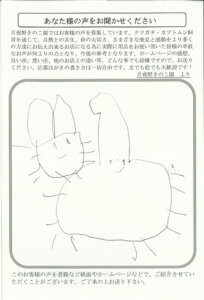 あなた様の声をお聞かせください
月夜野きのこ園ではお客様の声を募集しています。クワガタ・カブトムシ飼
育を通じて、自然との共生、命の大切さ、さまざまな発見と感動をより多く
の方達にお伝え出来るお店になる為に実際に用品をお使い頂いた皆様の率直
なお声が何よりの力となり、今後の参考となります。ホームページの感想、
良い所、悪い所、他のお店との違い等、どんな事でも結構ですので、お送り
ください。応募はがきの書き方は一切自由です。文でも絵でも大歓迎です!
月夜野きのこ園 より
このお客様の声を書籍など紙面やホームページなどで、ご紹介させていた
だくことがございます。ご了承の上お送り下さい。